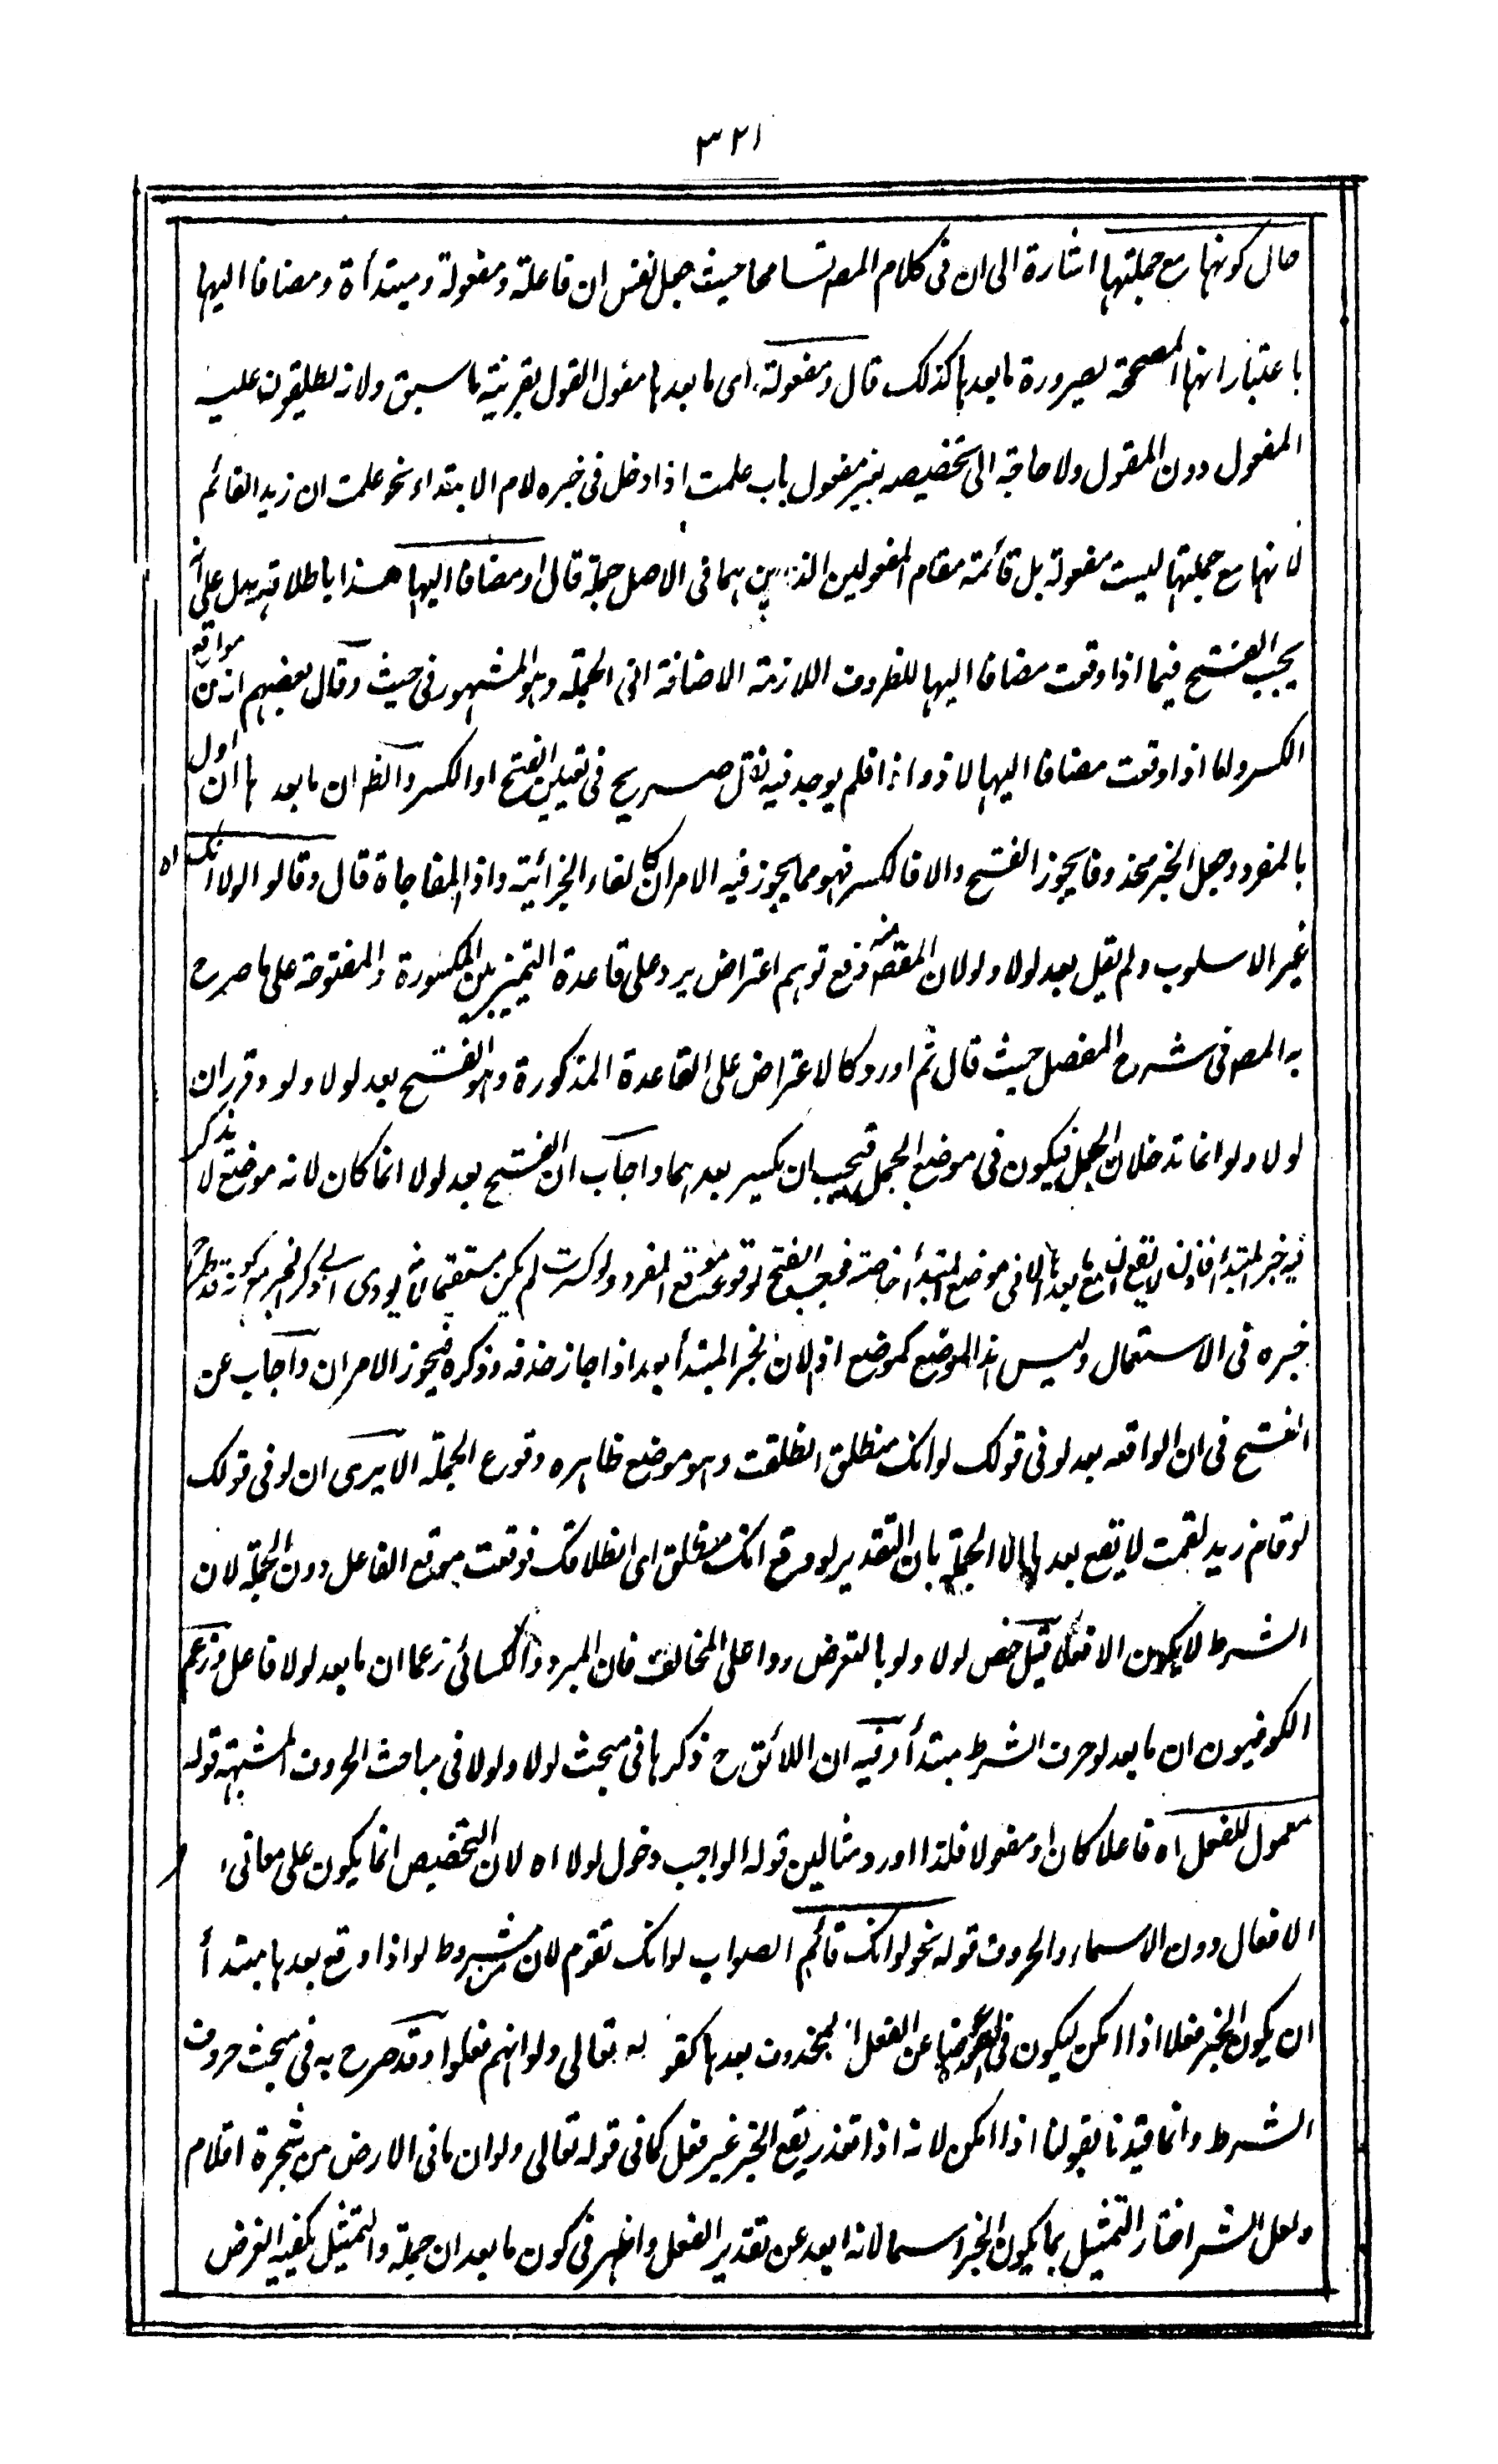 ٣٢١
حال كونها مع جملتها اشارة الى ان فى كلام المصـ تسامحا حيث جعل نفس ان فاعلة ومفعولة ومبتدأة ومضافا اليها
باعتبار انها المصححة لصيرورة ما بعدها كذلك قال ومفعولة اى ما بعدها مفعول القول بقرينة ما سبق ولانه يطلقون عليه
المفعول دون المقول ولا حاجة الى تخصيصه بغير مفعول باب علمت اذا دخل فى خبره لام الابتداء نحو علمت ان زيد القائم
لانها مع جملتها ليست مفعولة بل قائمة مقام المفعولين الذين هما فى الاصل جملة قال او مضافا اليها هذا باطلاقه يدل على انه
يجب الفتح فيما اذا وقعت مضافا اليها للظروف اللازمة الاضافة الى الجملة وهو المشهور فى حيث وقال بعضهم انه من مواقع
الكسر واما اذا وقعت مضافا اليها لاذ واذا فلم يوجد فيه نقل صريح فى تعيين الفتح او الكسر والظ ان ما بعدها ان اول
بالمفرد وجعل الخبر محذوفا يجوز الفتح والا فالكسر فهو مما يجوز فيه الامران كالفاء الجزائية واذا المفاجاة قال وقالوا لولا انك اه
غير الاسلوب ولم يقل بعد لولا ولو لان المقصـ منه دفع توهم اعتراض يرد على قاعدة التمييز بين المكسورة والمفتوحة على ما صرح
به المصـ فى شرح المفصل حيث قال ثم اورد كالاعتراض على القاعدة المذكورة وهو الفتح بعد لولا ولو وقرر ان
لولا ولو انما تدخلان الجمل فيكون فى موضع الجمل فيجب ان يكسر بعدهما واجاب ان الفتح بعد لولا انما كان لانه موضع لا يذكر
فيه خبر المبتدأ فاذن لا يقع ان مع ما بعدها الا فى موضع المبتدأ خاصة فيجب الفتح لوقوعه موقع المفرد ولو كسرت لم يكن مستقيما لانه يودى الى ذكر الخبر مع كونه قد طرح
خبره فى الاستعمال وليس هذا الموضع كموضع اذا لان خبر المبتدأ بعد اذا جاز حذفه وذكره فيجوز الامران واجاب عن
الفتح فى ان الواقعه بعد لو فى قولك لو انك منطلق انطلقت وهو موضع ظاهره وقوع الجملة الا يرى ان لو فى قولك
لو قام زيد لقمت لا تقع بعدها الا الجملة بان التقدير لو وقع انك منطلق اى انطلاقك فوقعت موقع الفاعل دون الجملة لان
الشرط لا يكون الا فعلا قيل خص لولا ولو بالتعرض ردا على المخالف فان المبرد والكسائى زعما ان ما بعد لولا فاعل وزعم
الكوفيون ان ما بعد لو حرف الشرط مبتدأ وفيه ان اللائق ح ذكرها فى مبحث لولا ولو لا فى مباحث الحروف المشبهة قوله
معمول للفعل اه فاعلا كان او مفعولا فلذا اورد مثالين قوله الواجب دخول لولا اه لان التخصيص انما يكون على معانى
الافعال دون الاسماء والحروف قوله نحو لو انك قائم الصواب لو انك تقوم لان من شروط لو اذا وقع بعدها مبتدأ
ان يكون الخبر فعلا اذا امكن ليكون فى الصورة عوضا عن الفعل المحذوف بعدها كقوله تعالى ولو انهم فعلوا وقد صرح به فى مبحث حروف
الشرط وانما قيدنا بقولنا اذا امكن لانه اذا تعذر يقع الخبر غير فعل كما فى قوله تعالى ولو ان ما فى الارض من شجرة اقلام
ولعل الشـ اختار التمثيل بما يكون الخبر اسما لانه ابعد عن تقدير الفعل واظهر فى كون ما بعد ان جملة والتمثيل يكفيه الفرض